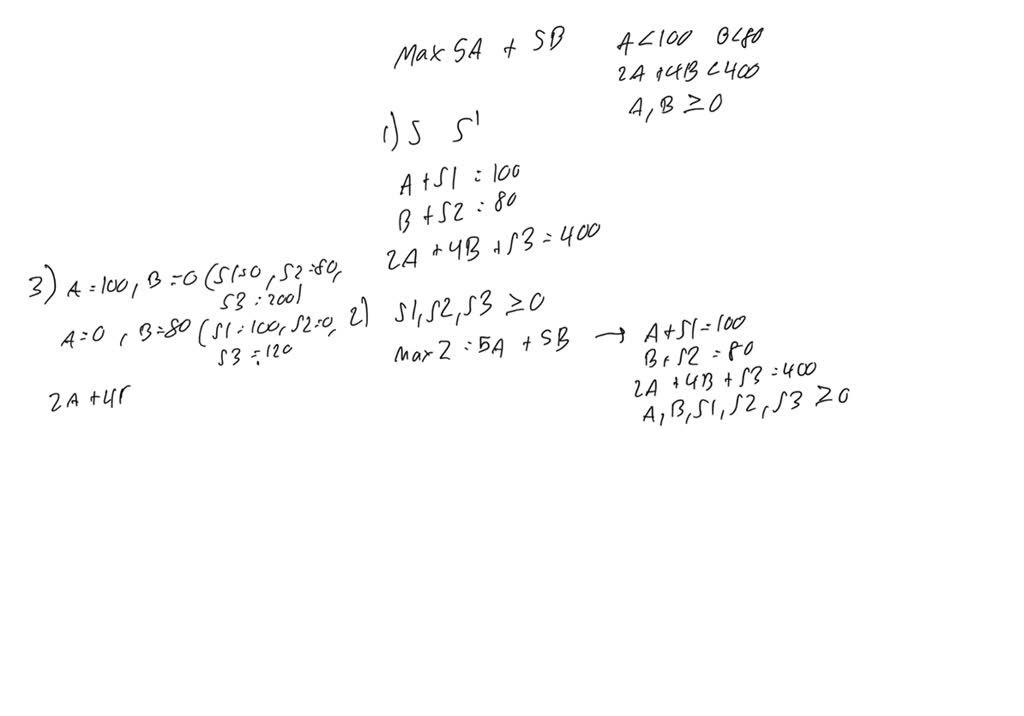 Max 5A + 5B
A < 100 B < 80
2A + 4B < 400
A, B ≥ 0
1) S S'
A + S1 = 100
B + S2 = 80
2A + 4B + S3 = 400
S1, S2, S3 ≥ 0
2) Max Z = 5A + 5B → A + S1 = 100
B + S2 = 80
2A + 4B + S3 = 400
A, B, S1, S2, S3 ≥ 0
3) A = 100, B = 0 (S1=0, S2=80,
S3 = 200)
A = 0, B = 80 (S1 = 100, S2=0,
S3 = 120
2A + 4